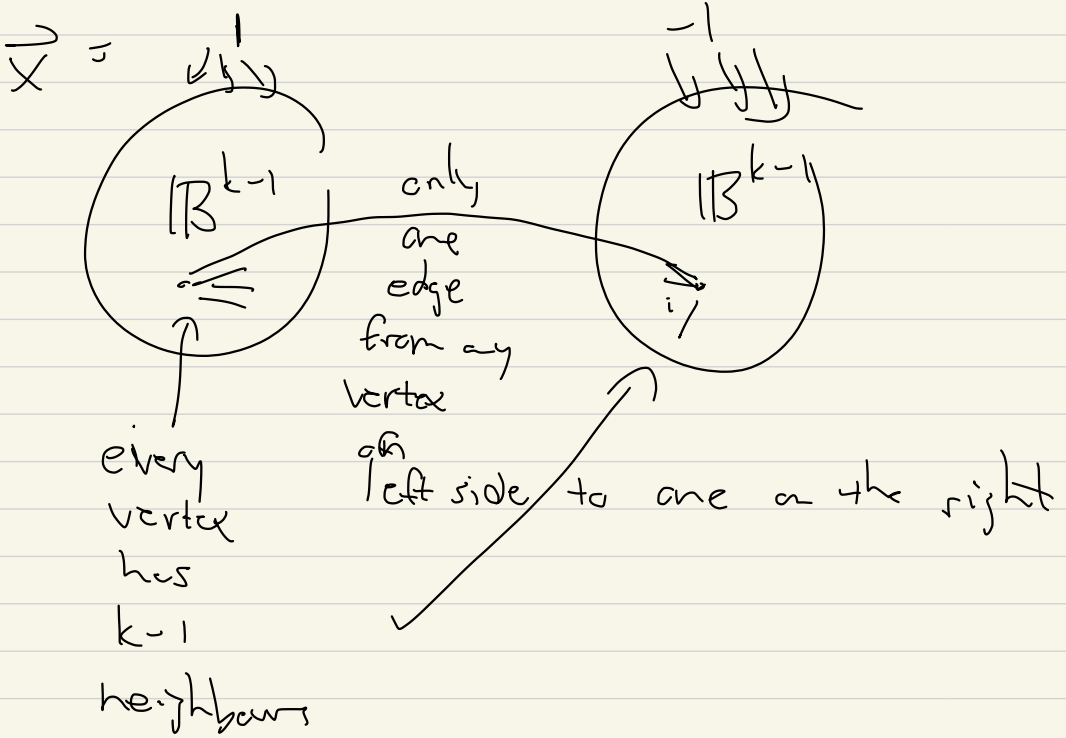 x⃗ =
1
-1
𝔹^{k-1}
𝔹^{k-1}
only
one
edge
from any
vertex
on
left side to one on the right
i
every
vertex
has
k-1
neighbours